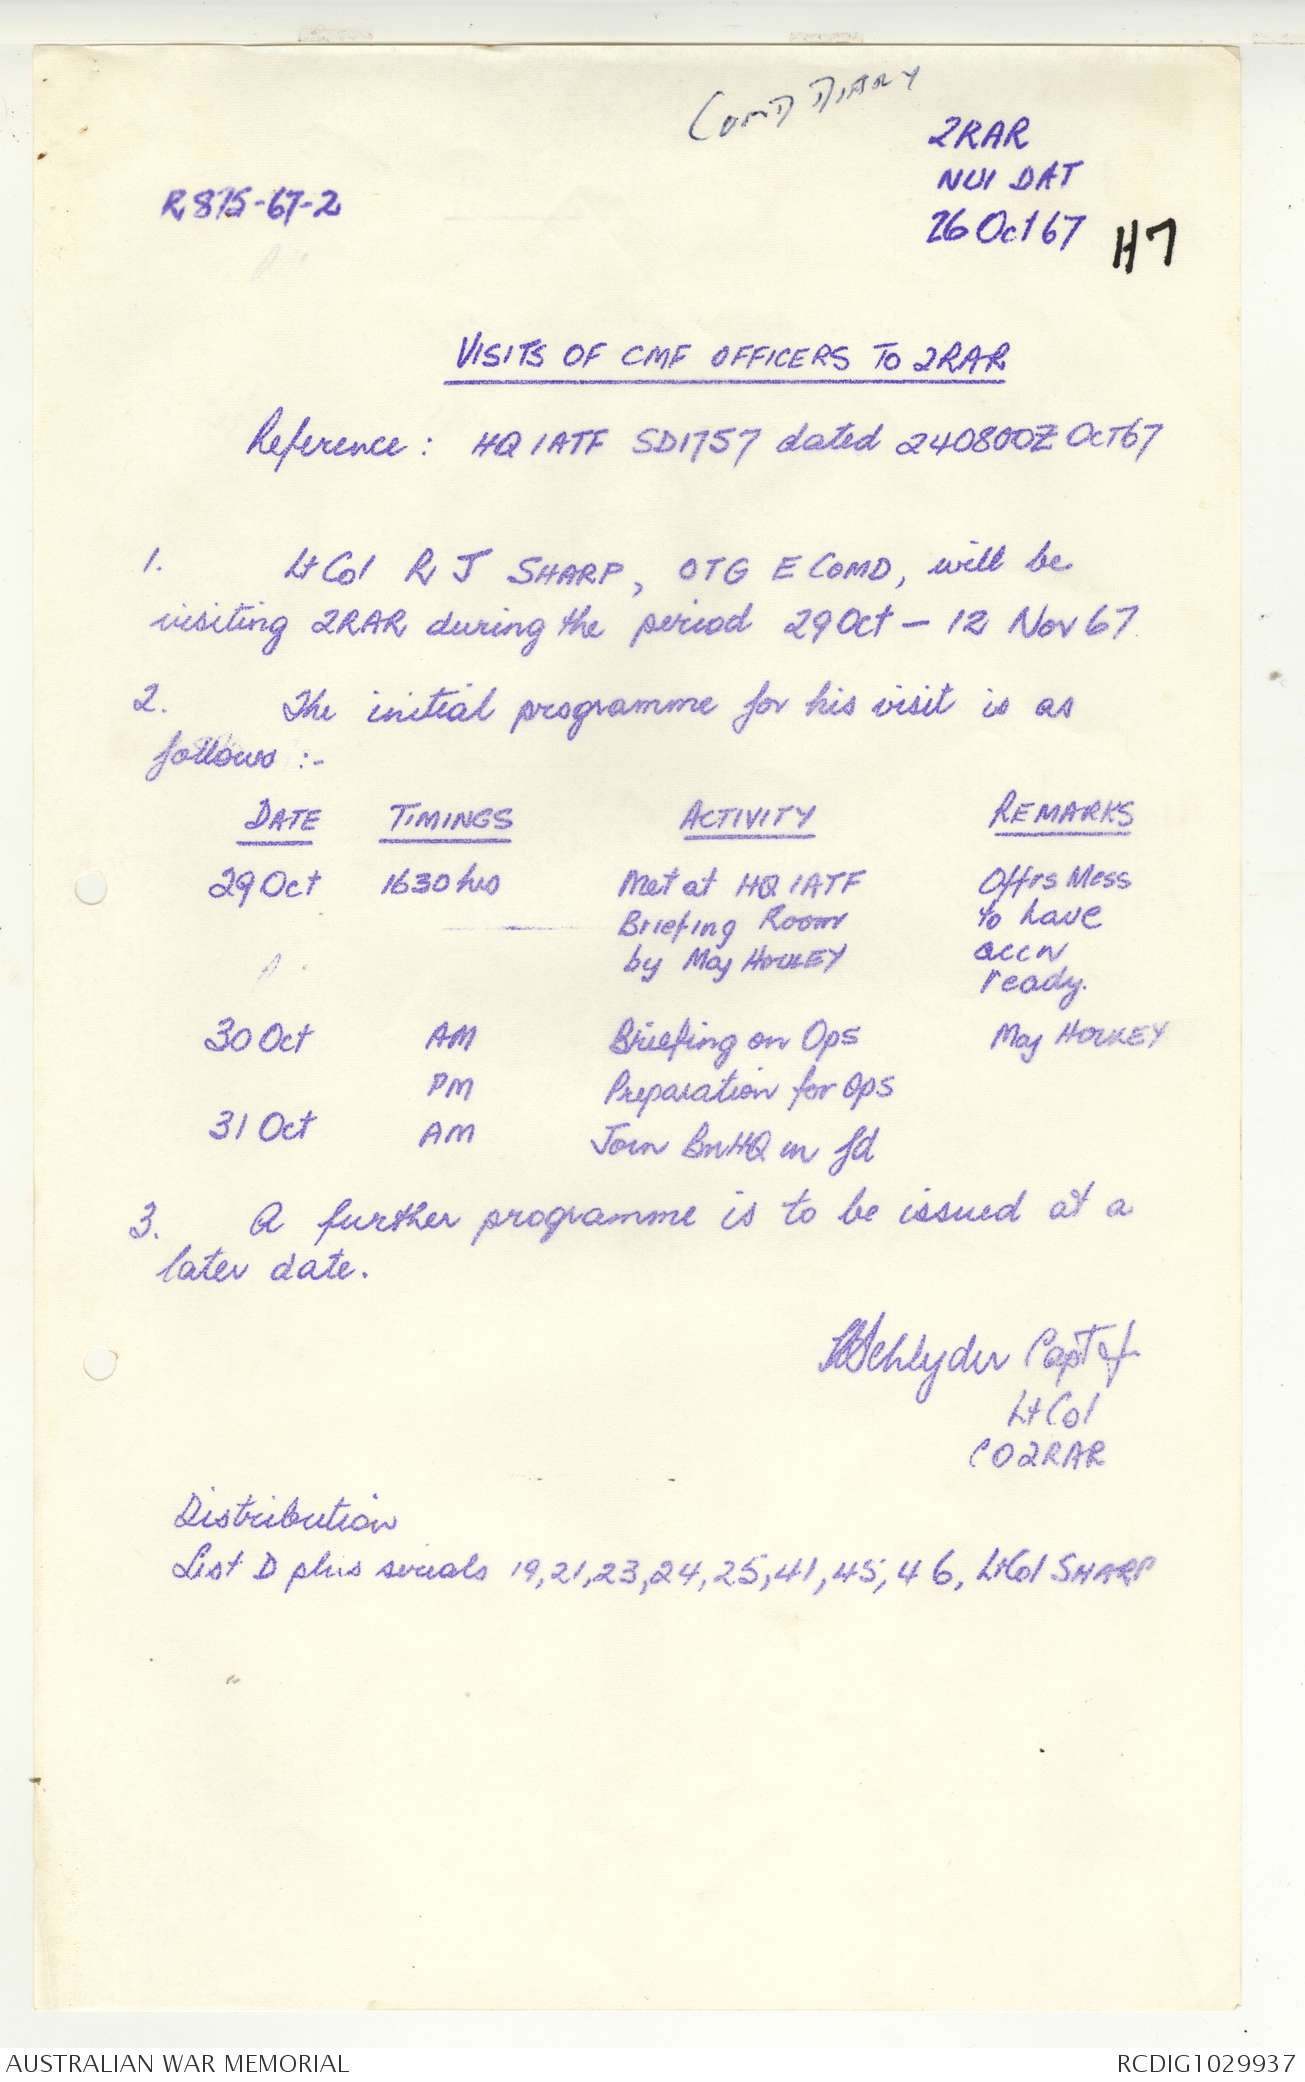 COMD DIARY
2RAR
NUI DAT
R875-67-2
26 Oct 67
H7
VISITS OF CMF OFFICERS TO 2RAR
Reference: HQ 1ATF SD1757 dated 240800Z OCT67
1. Lt Col R J SHARP, OTG E COMD, will be
visiting 2RAR during the period 29 Oct - 12 Nov 67.
2. The initial programme for his visit is as
follows :-
DATE TIMINGS ACTIVITY REMARKS
29 Oct 1630 hrs Met at HQ 1ATF Offrs Mess
Briefing Room to have
by Maj accn
ready.
30 Oct AM Briefing on Ops Maj
PM Preparation for Ops
31 Oct AM Join BnHQ in fd
3. A further programme is to be issued at a
later date.
Schlyder Capt for
Lt Col
CO 2RAR
Distribution
List D plus serials 19, 21, 23, 24, 25, 41, 45, 46, Lt Col SHARP
AUSTRALIAN WAR MEMORIAL
RCDIG1029937